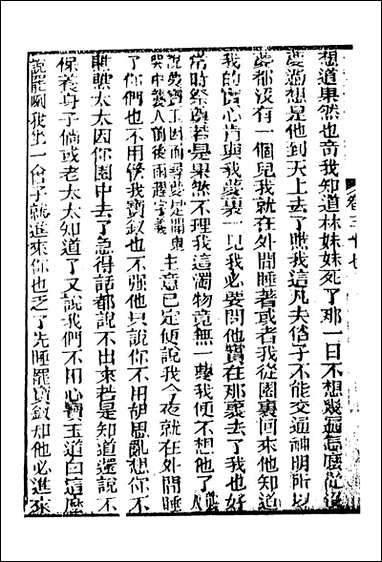 想道果然也奇我知道林妹妹死了那一日不想幾遍怎麼從沒
夢過想是他到天上去了瞧我這凡夫俗子不能交通神明所以
夢都沒有一個兒我就在外間睡著或者我從園裏回來他知道
我的實心肯與我夢裏一見我必要問他實在那裏去了我也好
常時祭奠若是果然不理我這濁物竟無一夢我便不想他了
主意已定便說我今夜就在外間睡
了你們也不用管我寶釵也不强他只說你不用胡思亂想你不
瞧瞧太太因你園中去了急得話都說不出來若是知道還說不
保養身子倘或老太太知道了又說我們不用心寶玉道白這麼
說罷咧我坐一會子就進來你也乏了先睡罷寶釵知他必進來